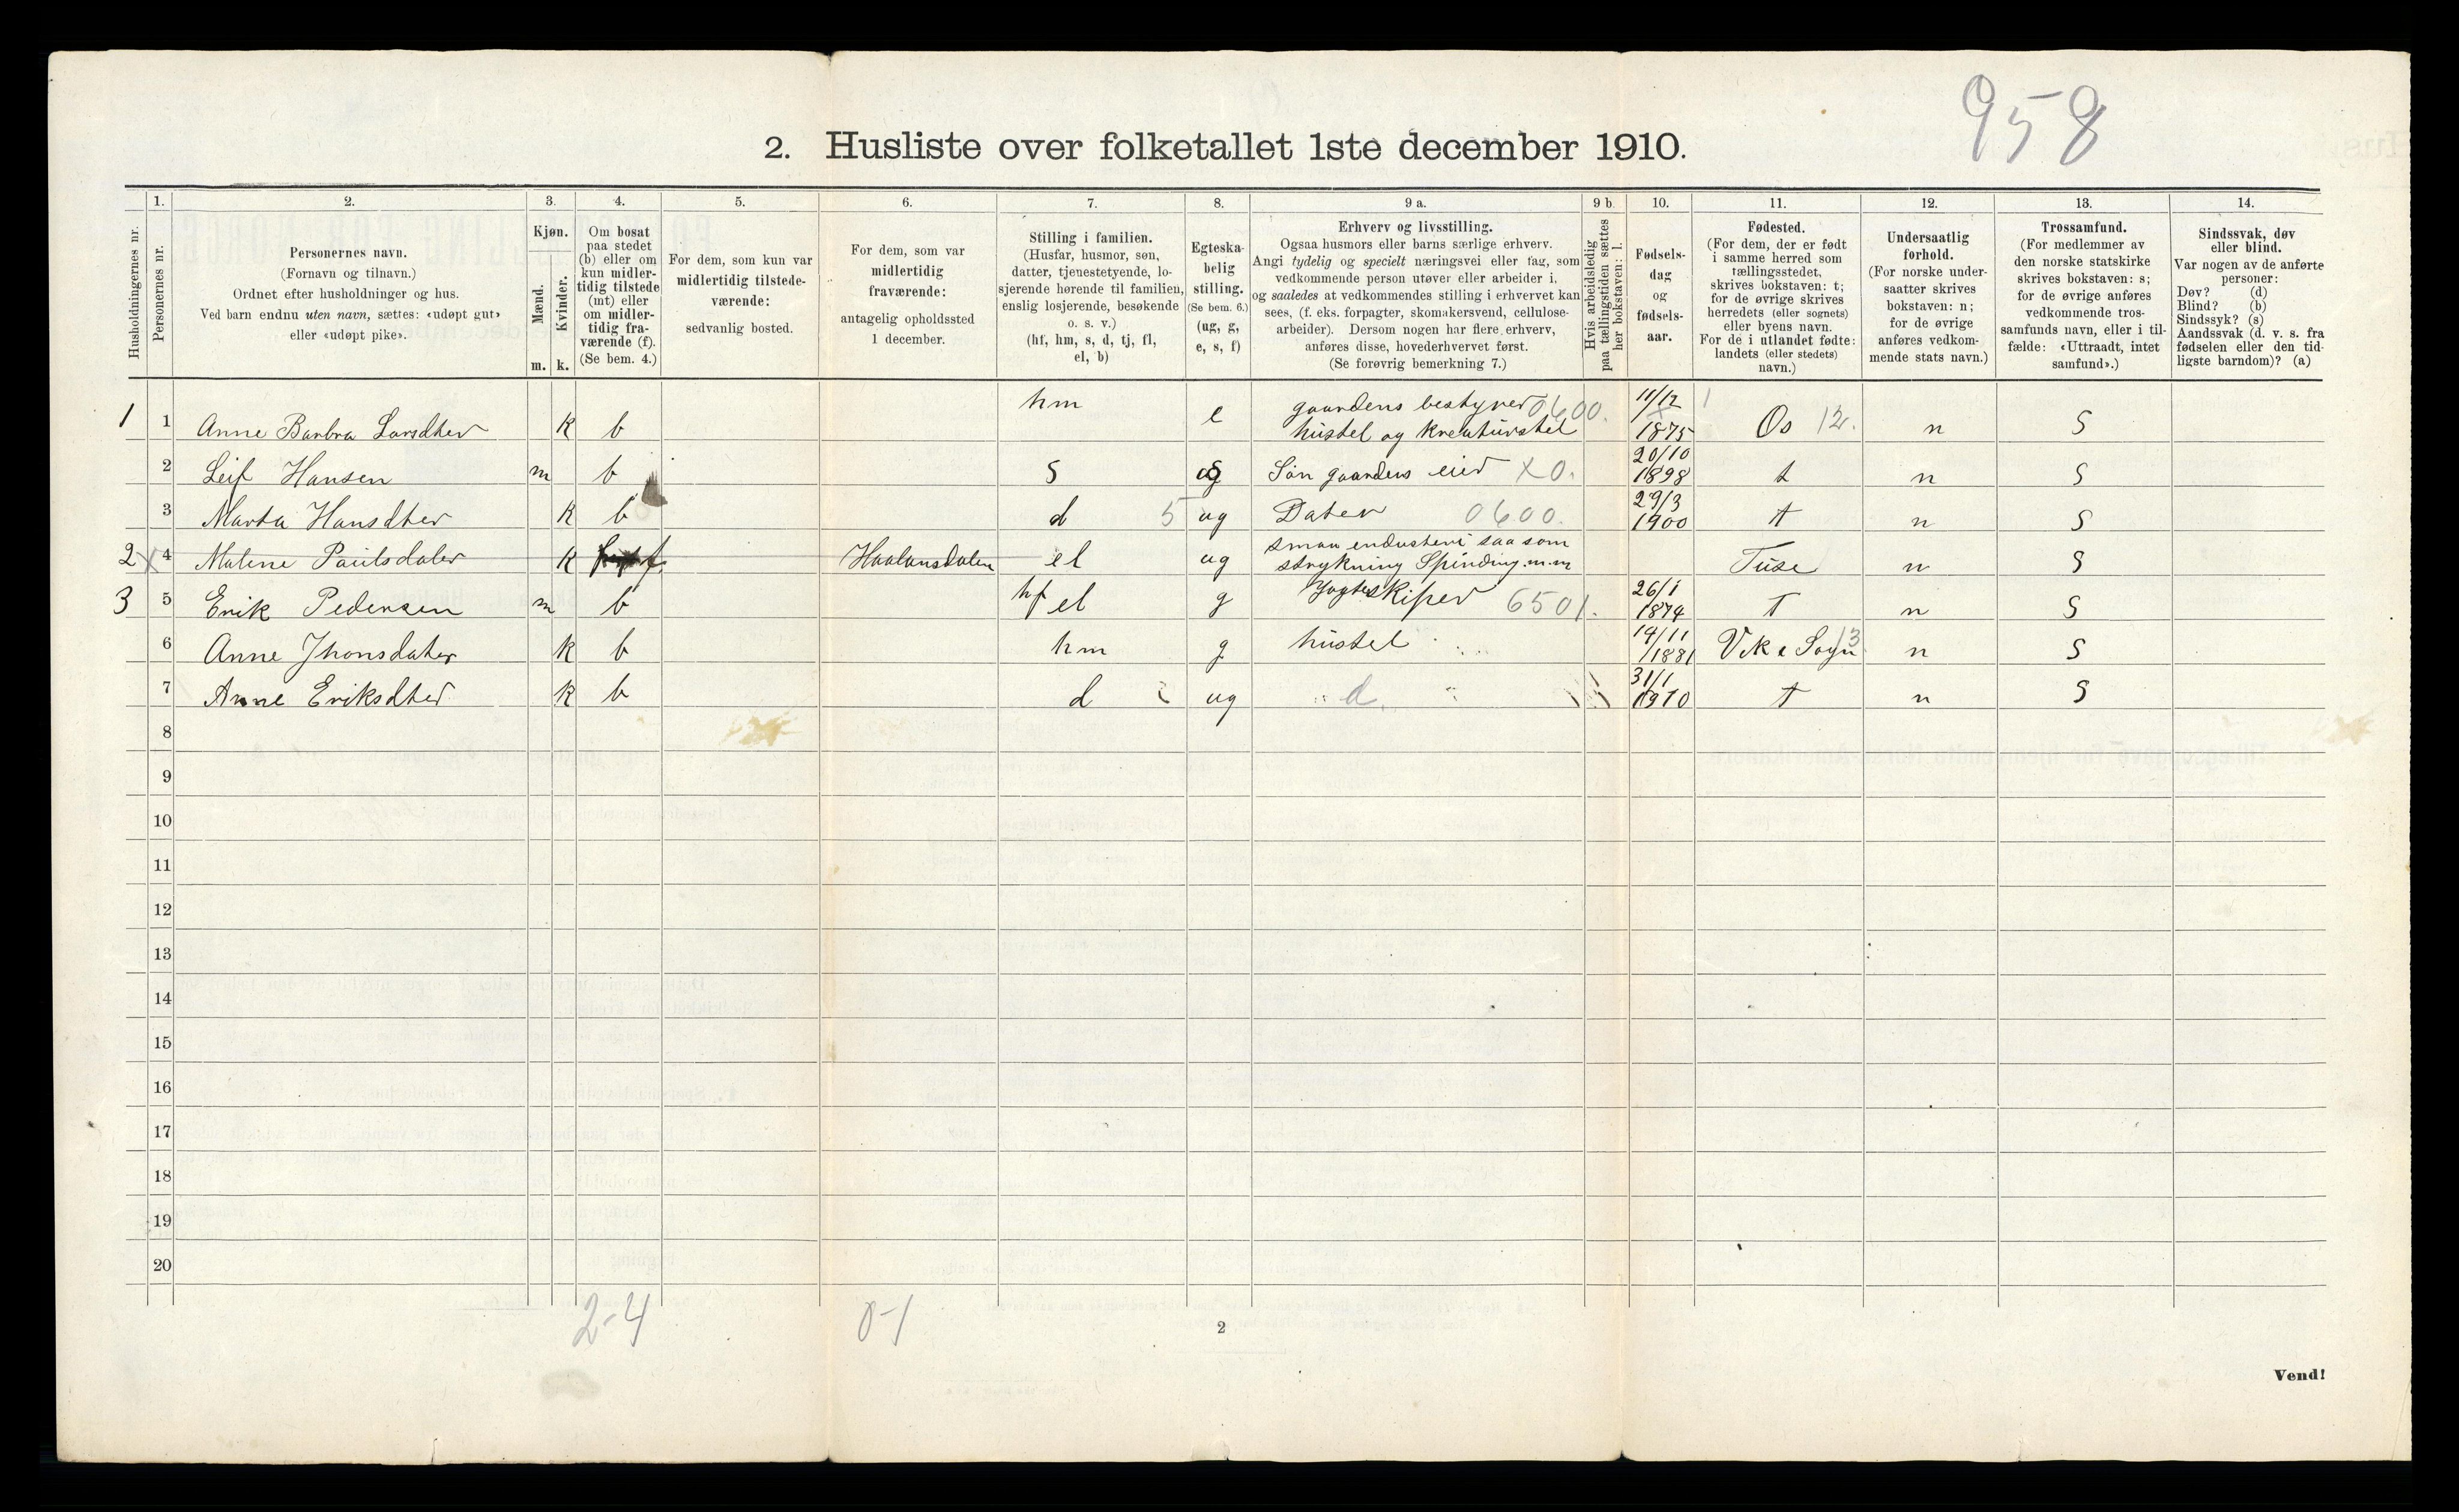 958
2. Husliste over folketallet 1ste december 1910.
Husholdningernes nr.
Personernes nr.
1. 2. 3. 4. 5. 6. 7. 8. 9 a. 9 b. 10. 11. 12. 13. 14.
Personernes navn.
(Fornavn og tilnavn.)
Ordnet efter husholdninger og hus.
Ved barn endnu uten navn, sættes: «udøpt gut»
eller «udøpt pike».
Kjøn.
Mænd.
Kvinder.
m. k.
Om bosat
paa stedet
(b) eller om
kun midler-
tidig tilstede
(mt) eller
om midler-
tidig fra-
værende (f).
(Se bem. 4.)
For dem, som kun var
midlertidig tilstede-
værende:
sedvanlig bosted.
For dem, som var
midlertidig
fraværende:
antagelig opholdssted
1 december.
Stilling i familien.
(Husfar, husmor, søn,
datter, tjenestetyende, lo-
sjerende hørende til familien,
enslig losjerende, besøkende
o. s. v.)
(hf, hm, s, d, tj, fl,
el, b)
Egteska-
belig
stilling.
(Se bem. 6.)
(ug, g,
e, s, f)
Erhverv og livsstilling.
Ogsaa husmors eller barns særlige erhverv.
Angi tydelig og specielt næringsvei eller fag, som
vedkommende person utøver eller arbeider i,
og saaledes at vedkommendes stilling i erhvervet kan
sees, (f. eks. forpagter, skomakersvend, cellulose-
arbeider). Dersom nogen har flere erhverv,
anføres disse, hovederhvervet først.
(Se forøvrig bemerkning 7.)
Hvis arbeidsledig
paa tællingstiden sættes
her bokstaven: l.
Fødsels-
dag
og
fødsels-
aar.
Fødested.
(For dem, der er født
i samme herred som
tællingsstedet,
skrives bokstaven: t;
for de øvrige skrives
herredets (eller sognets)
eller byens navn.
For de i utlandet fødte:
landets (eller stedets)
navn.)
Undersaatlig
forhold.
(For norske under-
saatter skrives
bokstaven: n;
for de øvrige
anføres vedkom-
mende stats navn.)
Trossamfund.
(For medlemmer av
den norske statskirke
skrives bokstaven: s;
for de øvrige anføres
vedkommende tros-
samfunds navn, eller i til-
fælde: «Uttraadt, intet
samfund».)
Sindssvak, døv
eller blind.
Var nogen av de anførte
personer:
Døv? (d)
Blind? (b)
Sindssyk? (s)
Aandssvak (d. v. s. fra
fødselen eller den tid-
ligste barndom)? (a)
1 1 Anne Barbra Larsdtter k b hm e gaardens bestyrer 0600. hüstel og kreatürstel 11/12 1875 Os 12. n S
2 Leif Hansen m b S ug Søn gaardens eier X0. 20/10 1898 t n S
3 Marta Hansdtter k b d 5 ug Dater 0600. 29/3 1900 t n S
2 X 4 Malene Paülsdater k f Haalandsdalen el ug smaa endusteri saa som strykning Spinding m.m Tüse n S
3 5 Erik Pedersen m b hf el g Jagteskiper 6501. 26/1 1874 T n S
6 Anne Jhonsdater k b hm g hüstel 19/11 1881 Vik i Sogn 13 n S
7 Anne Eriksdtter k b d ug d. 31/1 1910 t n S
8
9
10
11
12
13
14
15
16
17
18
19
20
2-4 0-1
2
Vend!